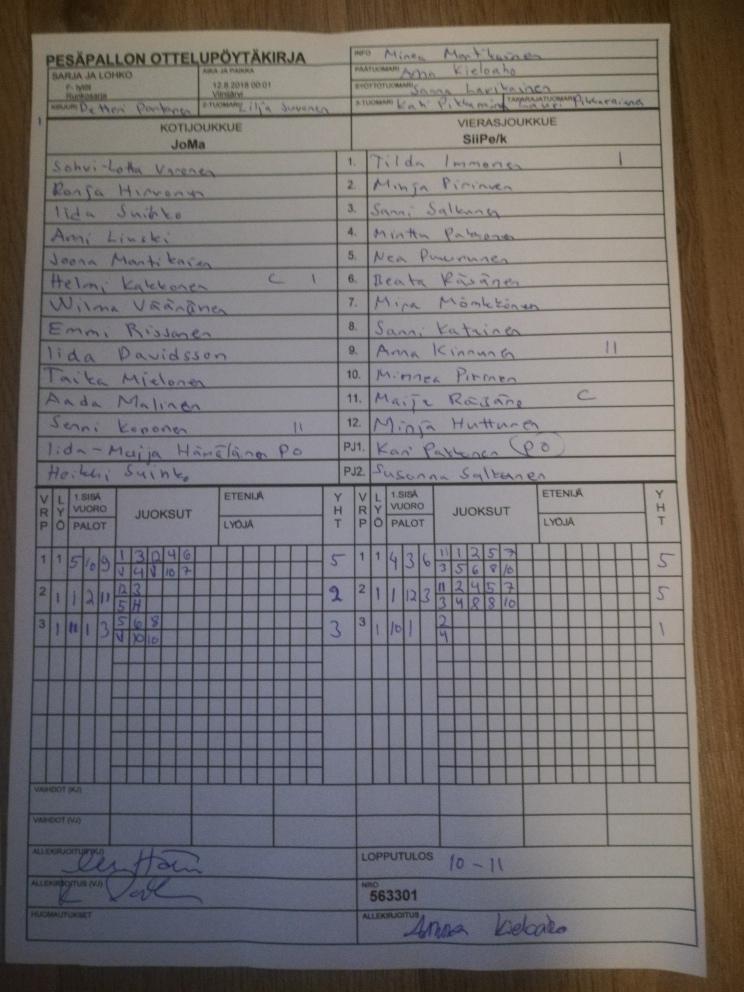 PESÄPALLON OTTELUPÖYTÄKIRJA
INFO Minea Martikainen
SARJA JA LOHKO
F- tytöt
Runkosarja
AIKA JA PAIKKA
12.8.2018 00:01
Viinijärvi
PÄÄTUOMARI Anna Kieloaho
SYÖTTÖTUOMARI Sanna Larikainen
KIRJURI Petteri Partanen 2-TUOMARI Lilja Suvonen 3-TUOMARI Kati TAKARAJATUOMARI Lauri Pikkarainen
KOTIJOUKKUE VIERASJOUKKUE
JoMa SiiPe/k
Sohvi-Lotta Varonen 1. Tilda Immonen I
Ronja Hirvonen 2. Minja Pirinen
Iida Suihko 3. Sanni Salkunen
Anni Linski 4. Minttu Pakkonen
Joona Martikainen 5. Nea Puurunen
Helmi Kakkonen C I 6. Beata Räsänen
Wilma Väänänen 7. Mira Mömkkönen
Emmi Rissanen 8. Sanni Katainen
Iida Davidsson 9. Anna Kinnunen II
Taika Mielonen 10. Minnea Pirinen
Aada Malinen 11. Maija Räsänen C
Senni Koponen II 12. Minja Huttunen
Iida-Maija Hämäläinen PO PJ1. Kari Pakkanen PO
Heikki Suihko PJ2. Susanna Salkunen
VRP LYÖ 1.SISÄ VUORO PALOT JUOKSUT ETENIJÄ LYÖJÄ YHT VRP LYÖ 1.SISÄ VUORO PALOT JUOKSUT ETENIJÄ LYÖJÄ YHT
1 1 5 10 9 1 3 12 4 6 5 1 1 4 3 6 11 1 2 5 7 5
V 4 V 10 7 3 5 6 8 10
2 1 1 2 11 12 3 2 2 1 1 12 3 11 2 4 5 7 5
5 H 3 4 8 8 10
3 1 11 1 3 5 6 8 3 3 1 10 1 2 1
V 10 10 4
VAIHDOT (KJ)
VAIHDOT (VJ)
ALLEKIRJOITUS (KJ) LOPPUTULOS 10-11
ALLEKIRJOITUS (VJ) NRO
563301
HUOMAUTUKSET ALLEKIRJOITUS Anna Kieloaho